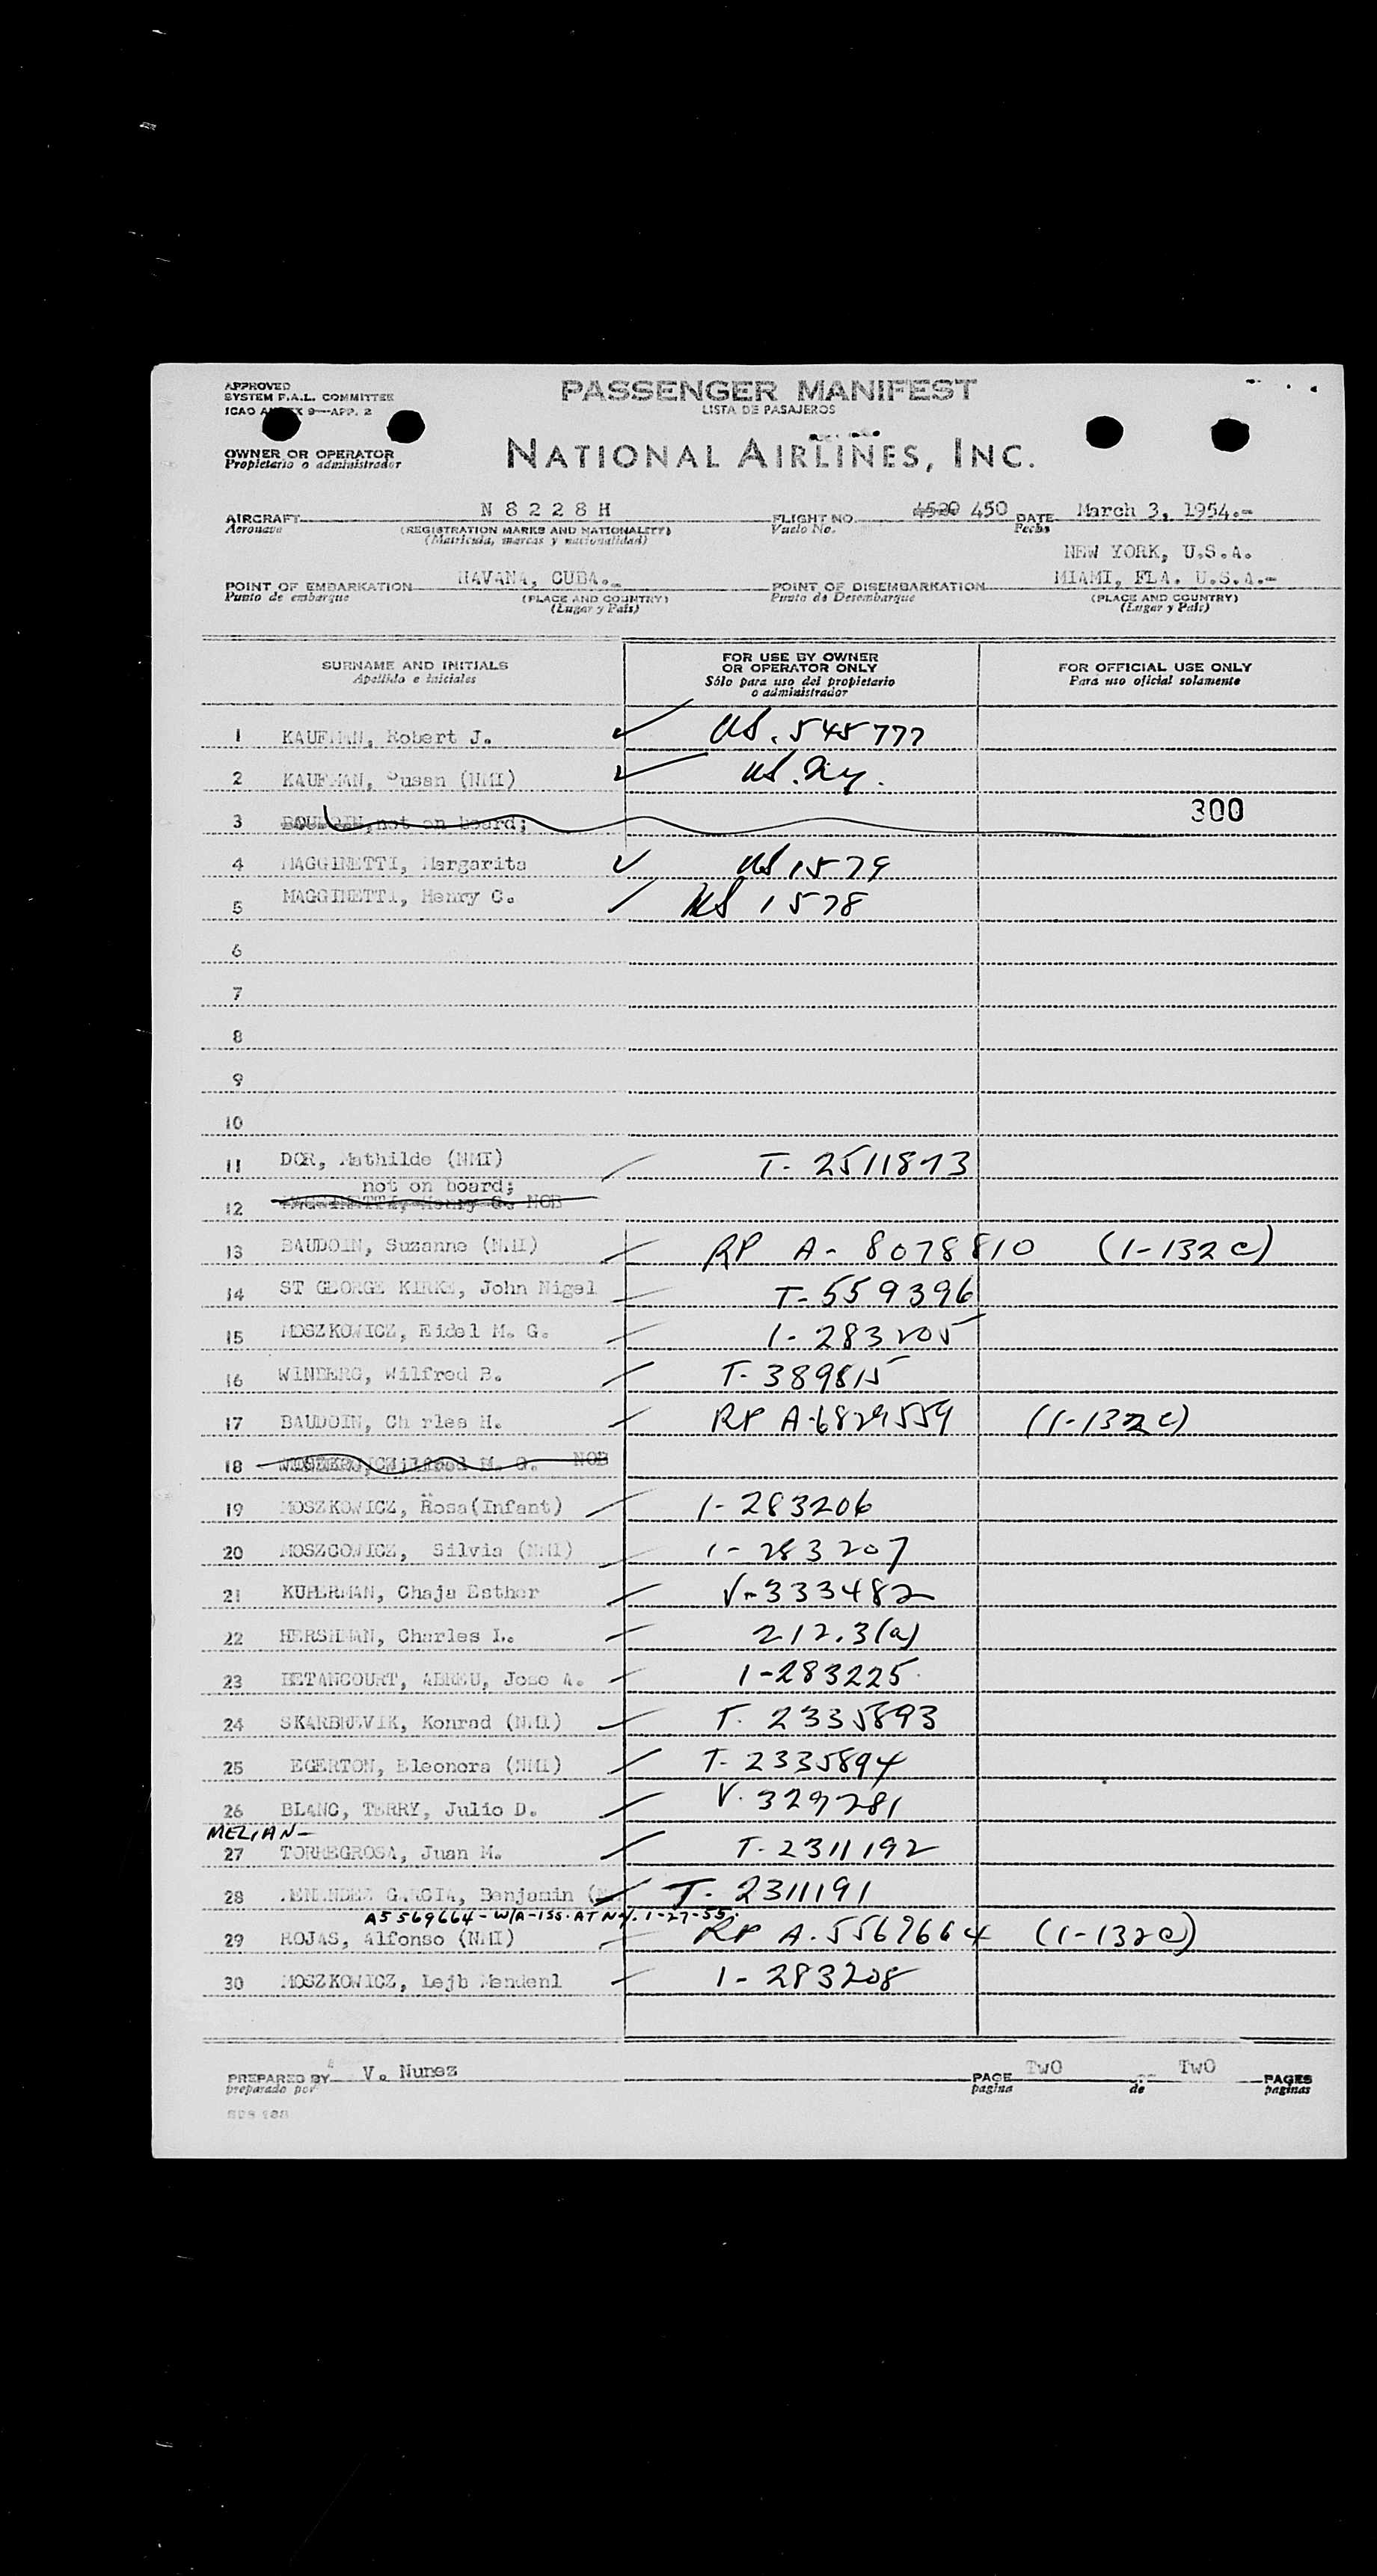 APPROVED
SYSTEM F.A.L. COMMITTEE
ICAO 9—APP. 2
PASSENGER MANIFEST
LISTA DE PASAJEROS
OWNER OR OPERATOR
Propietario o administrador
NATIONAL AIRLINES, INC.
AIRCRAFT N 8 2 2 8 H FLIGHT NO. 4520 450 DATE March 3, 1954.-
Aeronave (REGISTRATION MARKS AND NATIONALITY) Vuelo No. Fecha
(Matricula, marcas y nacionalidad)
NEW YORK, U.S.A.
POINT OF EMBARKATION HAVANA, CUBA.- POINT OF DISEMBARKATION MIAMI, FLA. U.S.A.-
Punto de embarque (PLACE AND COUNTRY) Punto de Desembarque (PLACE AND COUNTRY)
(Lugar y País) (Lugar y País)
SURNAME AND INITIALS
Apellido e iniciales
FOR USE BY OWNER
OR OPERATOR ONLY
Sólo para uso del propietario
o administrador
FOR OFFICIAL USE ONLY
Para uso oficial solamente
1 KAUFMAN, Robert J. US. 545777
2 KAUFMAN, Susan (NMI) US.
3 not on board; 300
4 MAGGINETTI, Margarita US 1579
5 MAGGINETTI, Henry C. US 1578
6
7
8
9
10
11 DOR, Mathilde (NMI) T- 2511873
not on board;
12 Henry C. NOB
13 BAUDOIN, Suzanne (NMI) RP A- 8078810 (1-132c)
14 ST GEORGE KIRKE, John Nigel T-559396
15 MOSZKOWICZ, Eidel M. G. 1-283205
16 WINBERG, Wilfred B. T-389815
17 BAUDOIN, Ch rles H. RP A-6829559 (1-132c)
18 M. G. NOB
19 MOSZKOWICZ, Rosa(Infant) 1-283206
20 MOSZCOWICZ, Silvia (NMI) 1-283207
21 KUPERMAN, Chaja Esther V-333482
22 HERSHMAN, Charles L. 212.3(a)
23 BETANCOURT, ABREU, Jose A. 1-283225
24 SKARBNJEVIK, Konrad (NMI) T- 2335893
25 EGERTON, Eleonora (NMI) T-2335894
26 BLANC, TERRY, Julio D. V-329281
MELIAN-
27 TORREGROSA, Juan M. T-2311192
28 MENENDEZ GARCIA, Benjamin T- 2311191
A5569664-W/A-ISS. AT N.Y. 1-27-55.
29 ROJAS, Alfonso (NMI) RP A.5569664 (1-132c)
30 MOSZKOWICZ, Lejb Mendenl 1-283208
PREPARED BY V. Nunez PAGE TwO TwO PAGES
preparado por pagina de paginas